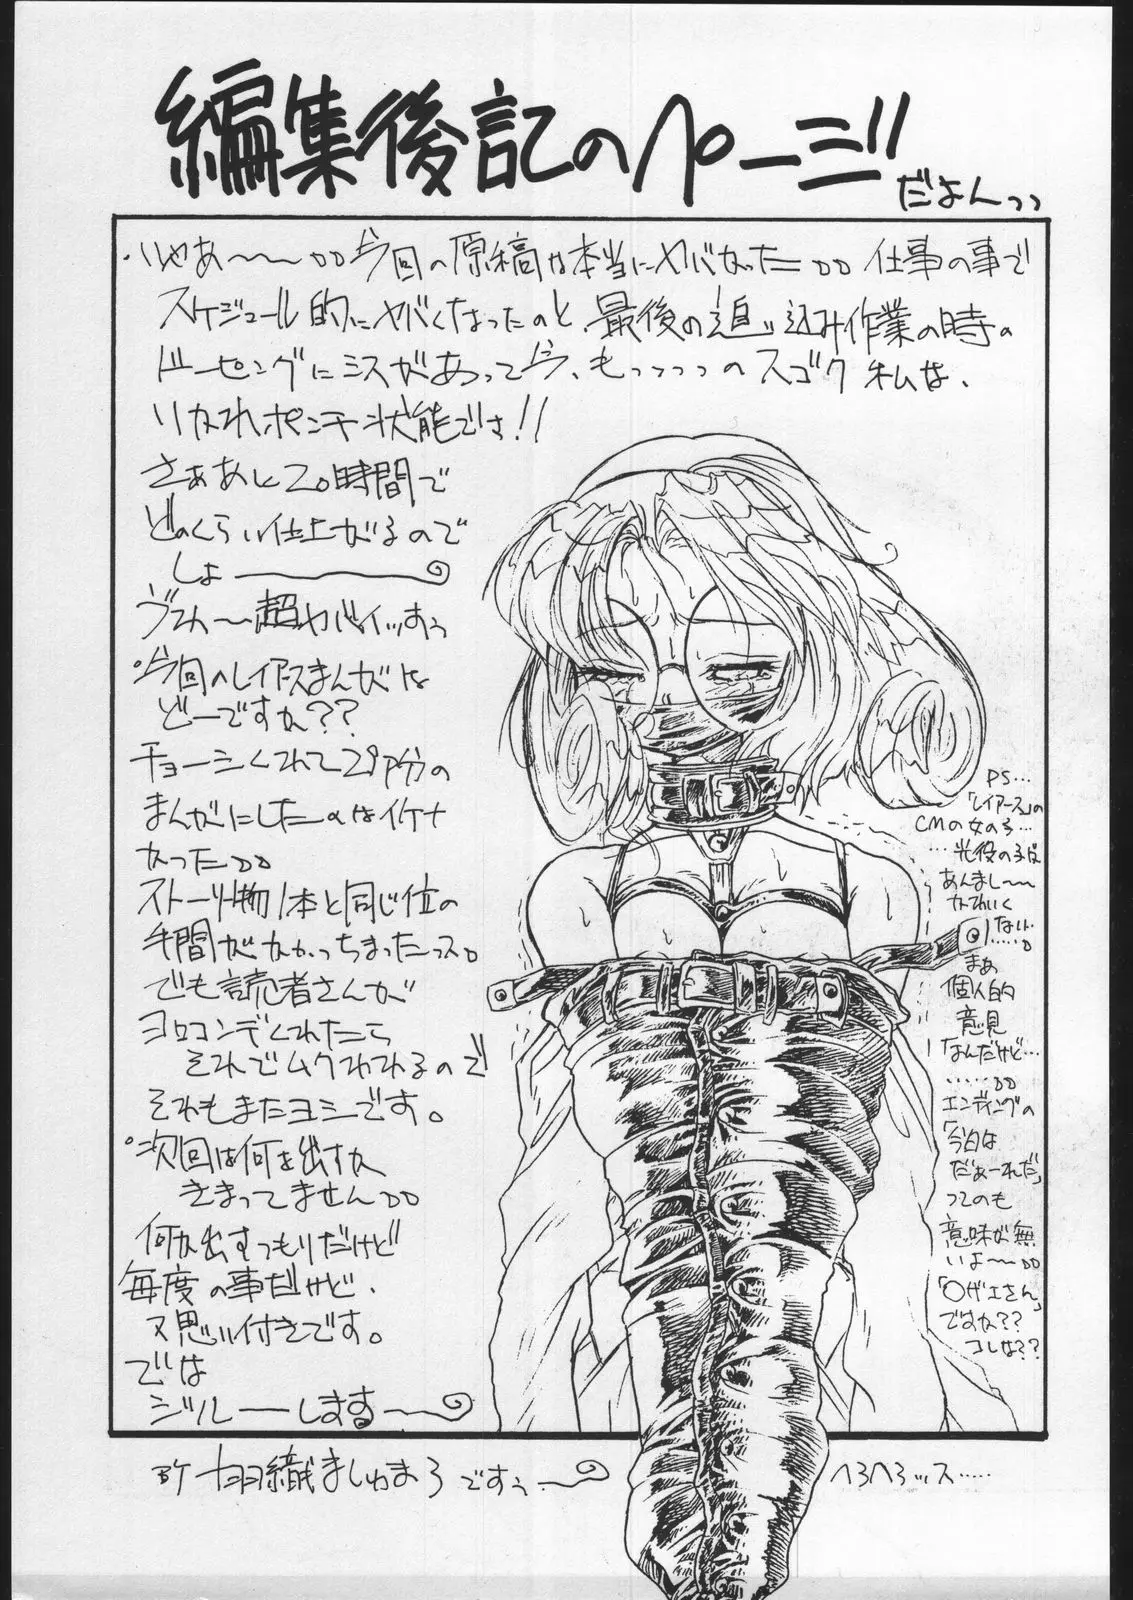 編集後記のページ
だよんっっ
・いやあ〜〜〜今回の原稿は本当にヤバかった 仕事の事で
スケジュール的にヤバくなったのと、最後の追い込み作業の時の
ドーピングにミスがあって今、もっっっっのスゴク私は、
いかれポンチ状態でさ!!
さああと20時間で
どのくらい仕上がるので
しょ
超ヤバイッすぅ
・今回のレイアースまんがは
どーですか??
チョーシくれて29P分の
まんがにしたのはイケナ
かった
ストーリー物1本と同じ位の
手間がかかっちまったっス。
でも読者さんが
ヨロコンデくれたら
それでムクわれるので
それもまたヨシです。
・次回は何を出すか
きまってません
何か出すつもりだけど
毎度の事だけど、
又思い付きです。
では
ジルーーします〜
BY 羽織ましゅまろですぅ〜
へろへろッス‥‥‥
PS…
「レイアース」の
CMの女の子…
…光役の子は
あんまし〜〜
かわいく
ない‥‥。
まあ
個人的
意見
なんだけど…
エンディングの
「今日は
だぁーれだ」
ってのも
意味が無
いよ〜〜
「○ザエさん」
ですか??
コレは??